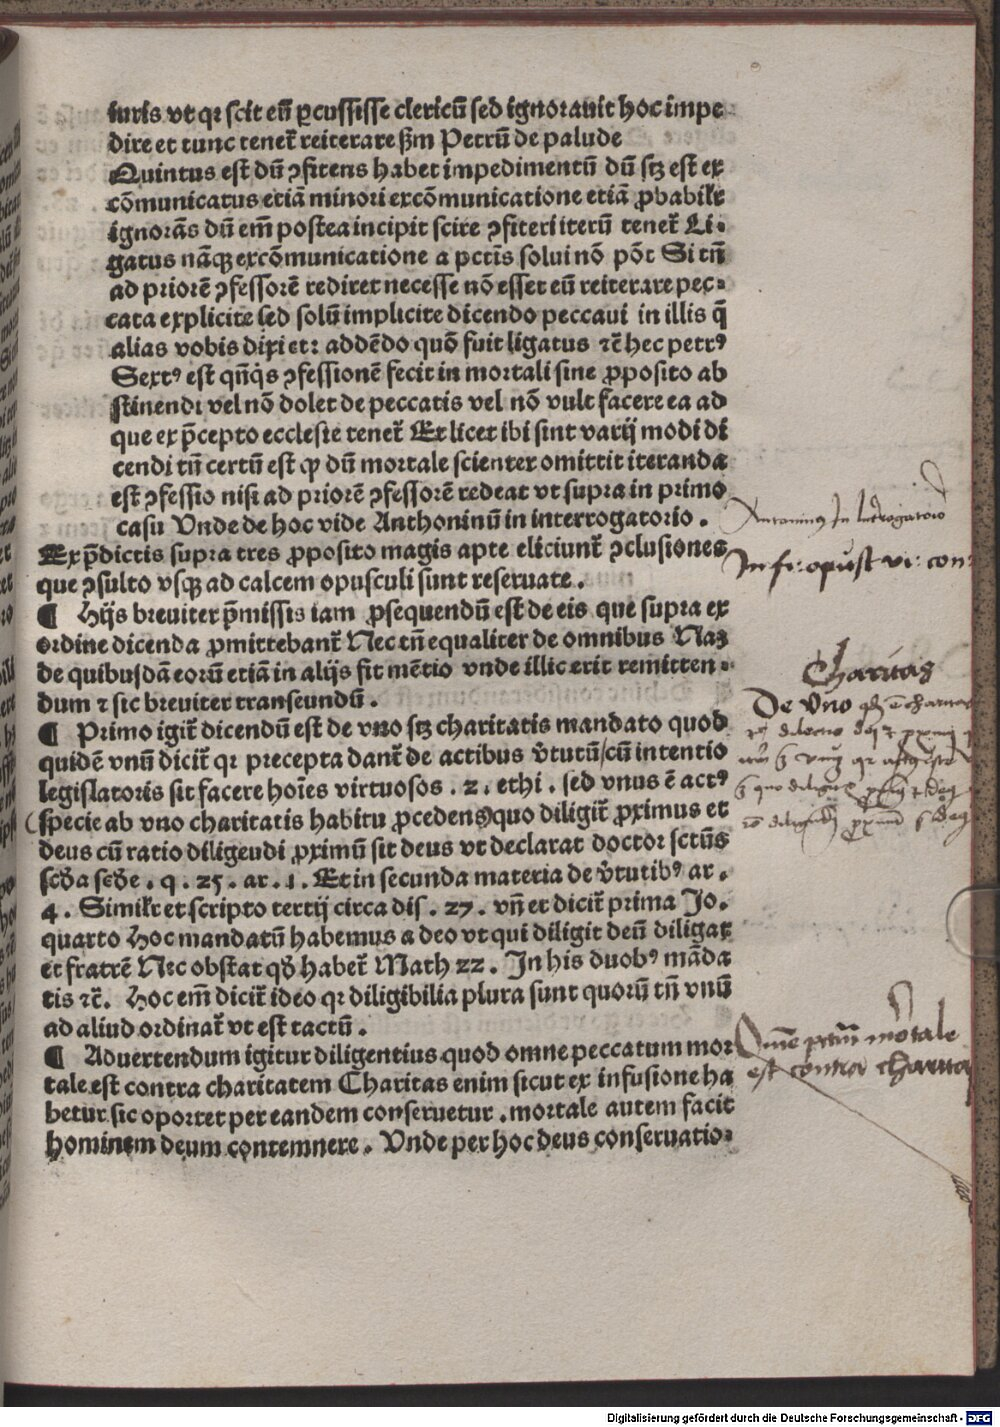 iuris vt qꝛ scit eū ꝑcussisse clericū sed ignorauit hoc impe
dire et tunc tenet̄ reiterare ẜm Petrū de palude
Quintus est dū ꝯfitens habet impedimentū dū stꝫ est ex
cōmunicatus etiā minori excōmunicatione etiā ꝓbabilr̄
ignorās dū em̄ postea incipit scire ꝯfiteri iterū tenet̄ Li⸗
gatus nāqꝫ excōmunicatione a pctīs solui nō pōt Si tn̄
ad priorē ꝯfessorē rediret necesse nō esset eū reiterare pec⸗
cata explicite sed solū implicite dicendo peccaui in illis q̄
alias vobis dixi etꝛ addēdo quō fuit ligatus ⁊c̄ hec petrꝰ
Sextꝰ est qn̄qꝫs ꝯfessionē fecit in mortali sine ꝓposito ab
stinendi vel nō dolet de peccatis vel nō vult facere ea ad
que ex p̄cepto ecclesie tenet̄ Et licet ibi sint varij modi di
cendi tn̄ certū est ꝙ dū mortale scienter omittit iteranda
est ꝯfessio nisi ad priorē ꝯfessorē redeat vt supra in primo
casu Vnde de hoc vide Anthoninū in interrogatorio .
Ex p̄dictis supra tres ꝓposito magis apte eliciunt̄ ꝯclusiones
que ꝯsulto vsqꝫ ad calcem opusculi sunt reseruate .
¶ Hijs breuiter p̄missis iam ꝓsequendū est de eis que supra ex
ordine dicenda ꝓmittebant̄ Nec tn̄ equaliter de omnibus Naꝫ
de quibusdā eorū etiā in alijs fit mētio vnde illic erit remitten⸗
dum ⁊ sic breuiter transeundū .
¶ Primo igit̄ dicendū est de vno stꝫ charitatis mandato quod
quidē vnū dicit̄ qꝛ precepta dant̄ de actibus v̄tutū/cū intentio
legislatoris sit facere hoīes virtuosos . 2 . ethi . sed vnus ē actꝰ
specie ab vno charitatis habitu ꝓcedens quo diligit̄ ꝓximus et
deus cū ratio diligendi ꝓximū sit deus vt declarat doctor sctūs
scda sede . q . 25 . ar . 1 . Et in secunda materia de v̄tutibꝰ ar .
4 . Similr̄ et scripto tertij circa dis . 27 . vn̄ et dicit̄ prima Jo.
quarto Hoc mandatū habemus a deo vt qui diligit deū diligat
et fratrē Nec obstat qd̄ habet̄ Math 22 . In his duobꝰ māda
tis ⁊c̄ . Hoc em̄ dicit̄ ideo qꝛ diligibilia plura sunt quorū tn̄ vnū
ad aliud ordinat̄ vt est tactū .
¶ Aduertendum igitur diligentius quod omne peccatum mor
tale est contra charitatem Charitas enim sicut ex infusione ha
betur sic oportet per eandem conseruetur . mortale autem facit
hominem deum contemnere . Vnde per hoc deus conseruatio⸗
Antoninꝰ In Interrogatorio
In fi: opust vi: con:
Charitas
De Vno
Omē pctm̄ mortale
est contra charita
Digitalisierung gefördert durch die Deutsche Forschungsgemeinschaft - DFG